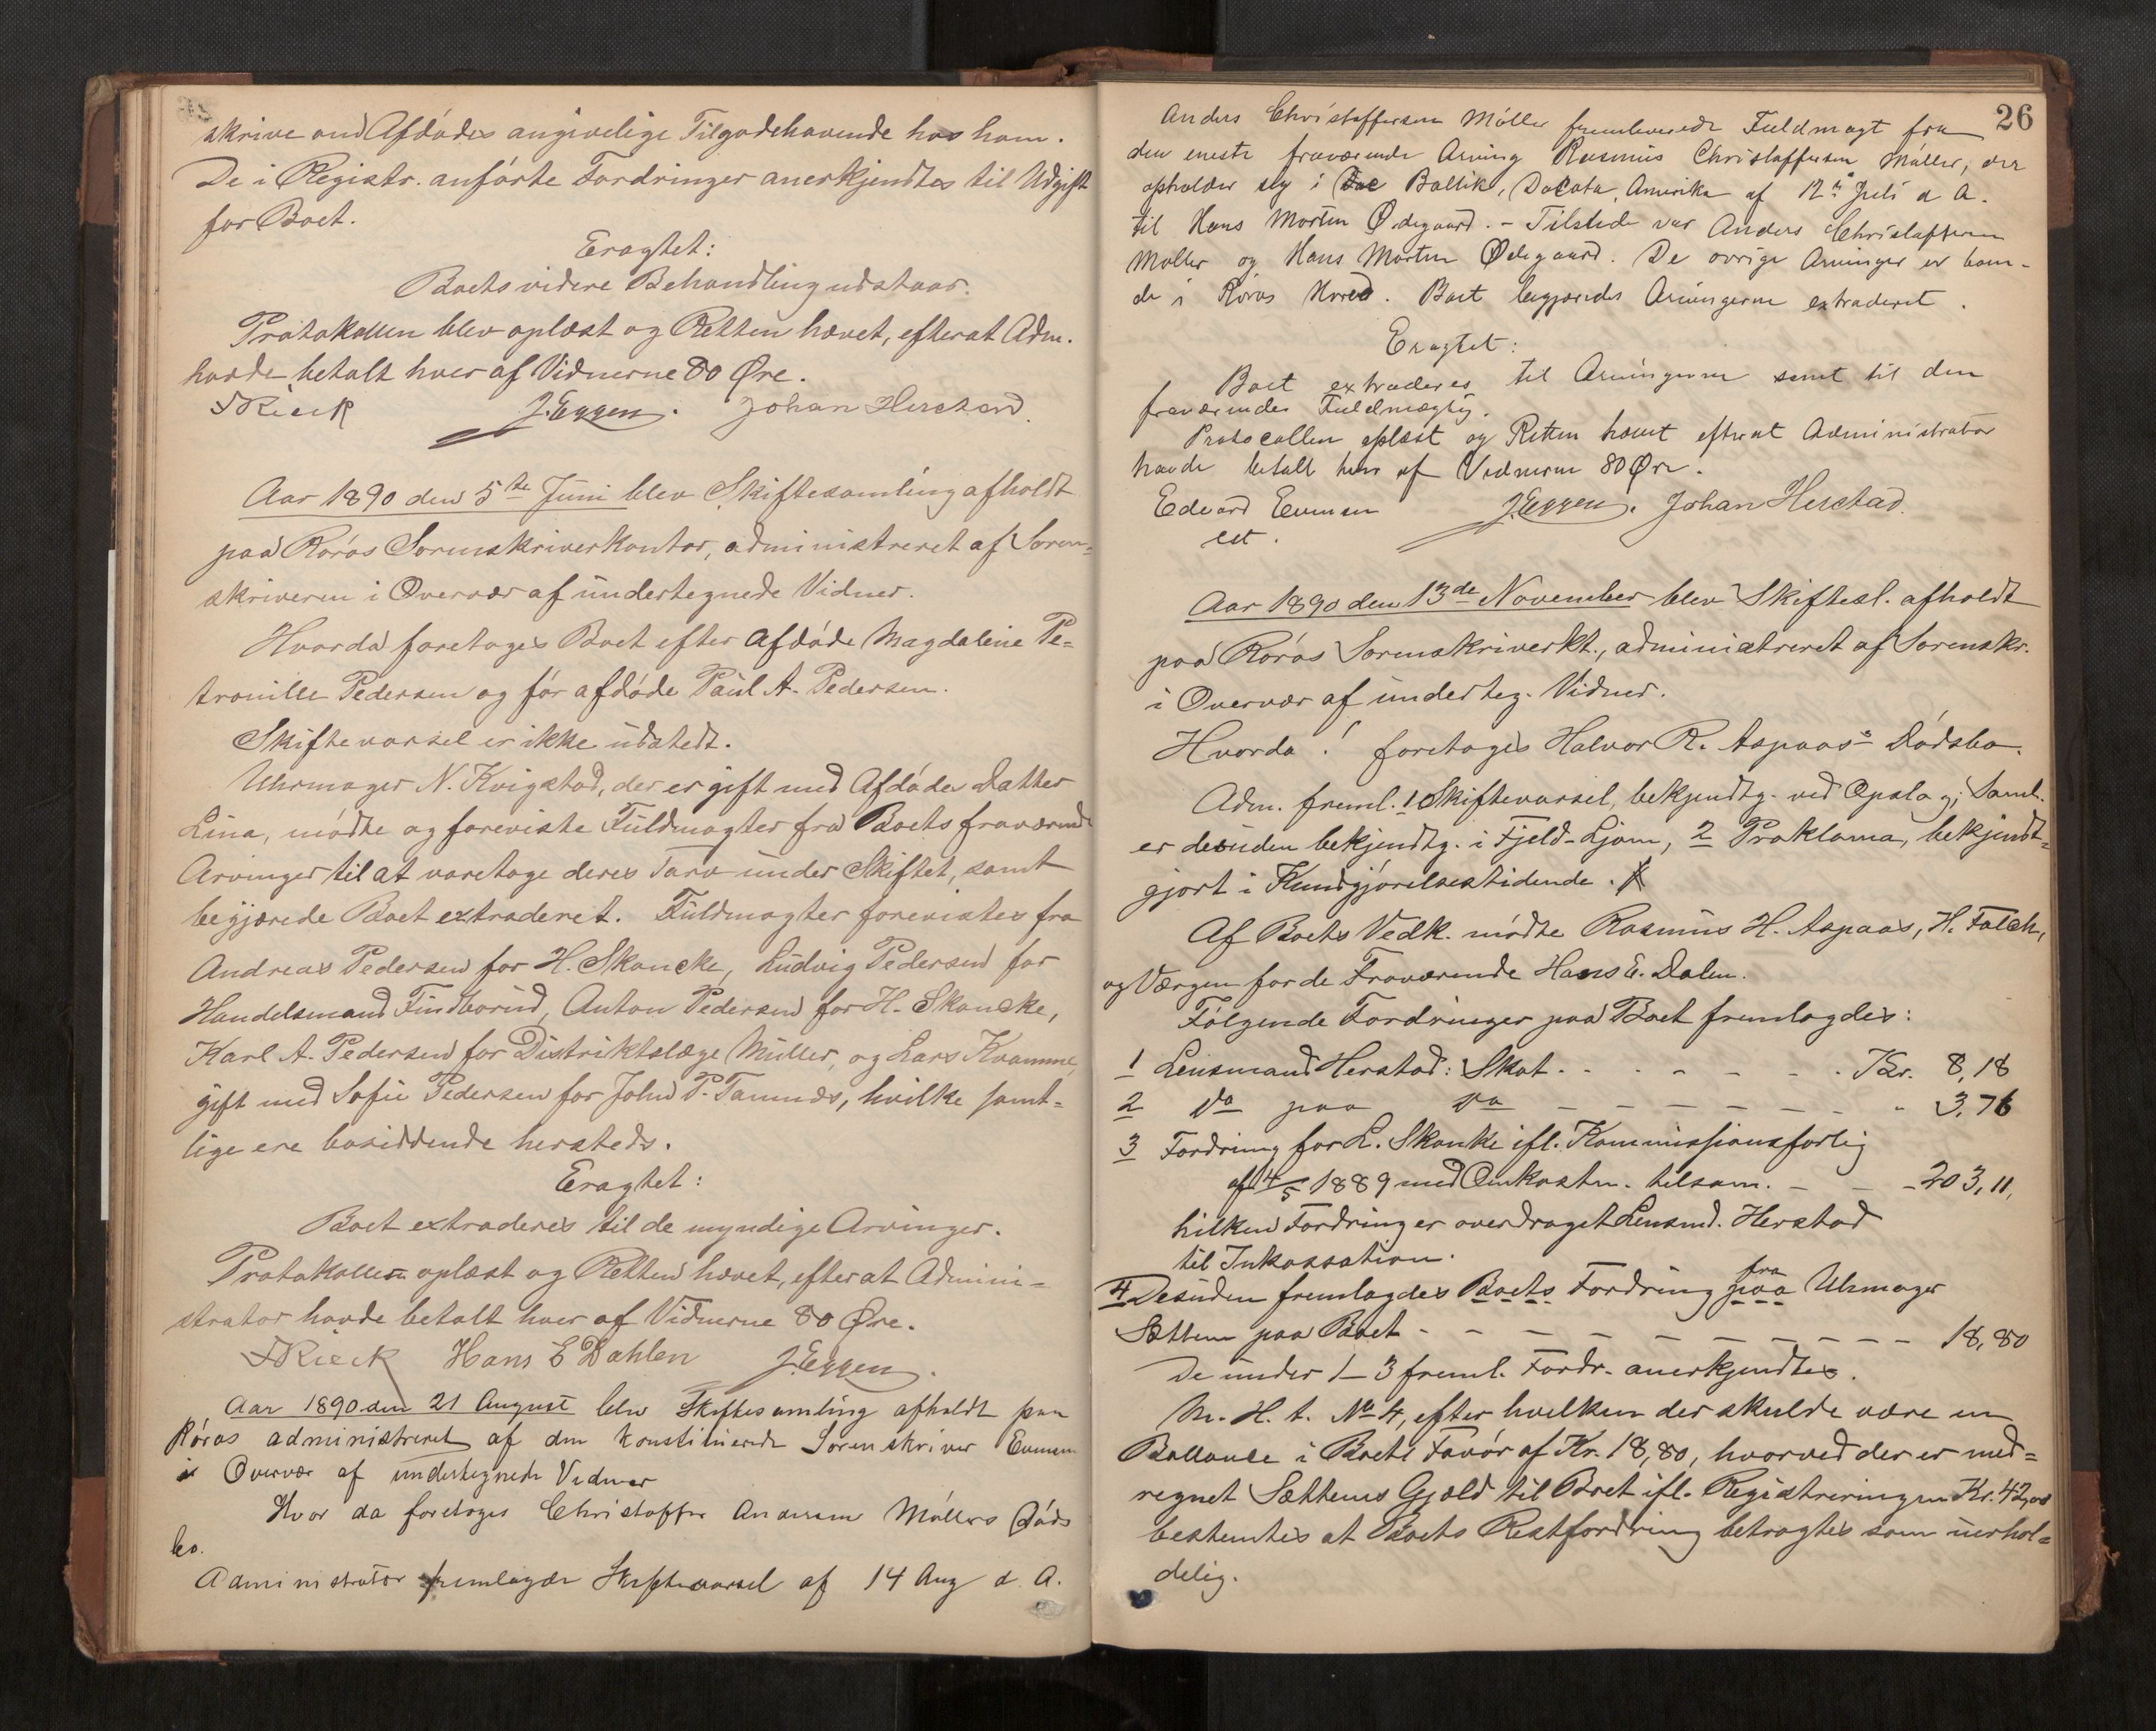 skrive om Afdødes angivelige Tilgodehavende hos ham.
De i Registr. anførte Fordringer anerkjendtes til Udgift
for Boet.
Eragtet:
Boets videre Behandling udstaar.
Protokollen blev oplæst og Retten hævet, efterat Adm.
havde betalt hver af Vidnerne 80 Øre.
FRieck J. Eggen. Johan Herstad.
Aar 1890 den 5te Juni blev Skiftesamling afholdt
paa Røros Sorenskriverkontor, administreret af Soren-
skriveren i Overvær af undertegnede Vidner.
Hvorda foretoges Boet efter Afdøde Magdalene Pe-
tronille Pedersen og før afdøde Paul A. Pedersen.
Skiftevarsel er ikke udstedt.
Uhrmager N. Kvigstad, der er gift med Afdødes Datter
Lina, mødte og foreviste Fuldmagter fra Boets fraværende
Arvinger til at varetage deres Tarv under Skiftet, samt
begjærede Boet extraderet. Fuldmagter forevistes fra
Andreas Pedersen for H. Skancke, Ludvig Pedersen for
Handelsmand Findborud, Anton Pedersen for H. Skancke,
Karl A. Pedersen for Distriktslæge Müller, og Lars Kvamme,
gift med Sofie Pedersen for John P. Tamnes, hvilke samt-
lige ere bosiddende hersteds.
Eragtet:
Boet extraderes til de myndige Arvinger.
Protokollen oplæst og Retten hævet, efterat Admini-
strator havde betalt hver af Vidnerne 80 Øre.
FRieck Hans E Dahlen J. Eggen.
Aar 1890 den 21 August blev Skiftesamling afholdt paa
Røros administreret af den konstituerede Sorenskriver Evensen
i Overvær af undertegnede Vidner
Hvor da foretoges Christoffer Andersen Møllers Døds
bo.
Administrator fremlagde Skiftevarsel af 14 Aug d. A.
26
Anders Christoffersen Møller fremleverede Fuldmagt fra
den eneste fraværende Arving Rasmus Christoffersen Møller, der
opholder sig i Baltik, Dacota, Amerika af 12te Juli d A.
til Hans Morten Ødegaard. - Tilstede var Anders Christoffersen
Møller og Hans Morten Ødegaard. De øvrige Arvinger er boen-
de i Røros Hered. Boet begjæredes Arvingerne extraderet.
Eragtet:
Boet extraderes til Arvingerne samt til den
fraværendes Fuldmægtig.
Protocollen oplæst og Retten hævet efterat Administrator
havde betalt hver af Vidnerne 80 Øre.
Edvard Evensen J. Eggen. Johan Herstad.
cst.
Aar 1890 den 13de November blev Skiftesl. afholdt
paa Røros Sorenskriverkt., administreret af Sorenskr.
i Overvær af underteg. Vidner.
Hvorda! foretoges Halvor R. Aspaas's Dødsbo.
Adm. freml. 1 Skiftevarsel, bekjendtg. ved Opslag; Saml.
er desuden bekjendtg. i Fjeld-Ljom, 2 Proklama, bekjendt-
gjort i Kundgjørelsestidende.
Af Boets Vedk. mødte Rasmus H. Aspaas, H. Falch,
og Værgen for de Fraværende Hans E. Dalen.
Følgende Fordringer paa Boet fremlagdes:
1 Lensmand Herstad: Skat - - - - Kr. 8,18
2 Do paa Do - - - - - " 3,76
3 Fordring for L. Skanke ifl. Kommissionsforlig
af 14/5 1889 med Omkostn. tilsam. - - - 203,11,
hilken Fordring er overdraget Lensmd. Herstad
til Inkassation.
4 Desuden fremlagdes Boets Fordring paa fra Uhmager
Sættem paa Boet - - - - - - - - 18,80
De under 1-3 freml. Fordr. anerkjendtes.
M. H. t. No 4, efter hvilken der skulde være en
Ballance i Boets Favør af Kr. 18,80, hvorved der er med-
regnet Sættems Gjæld til Boet ifl. Registreringen Kr. 42,00
bestemtes at Boets Restfordring betragtes som uerhol-
delig.